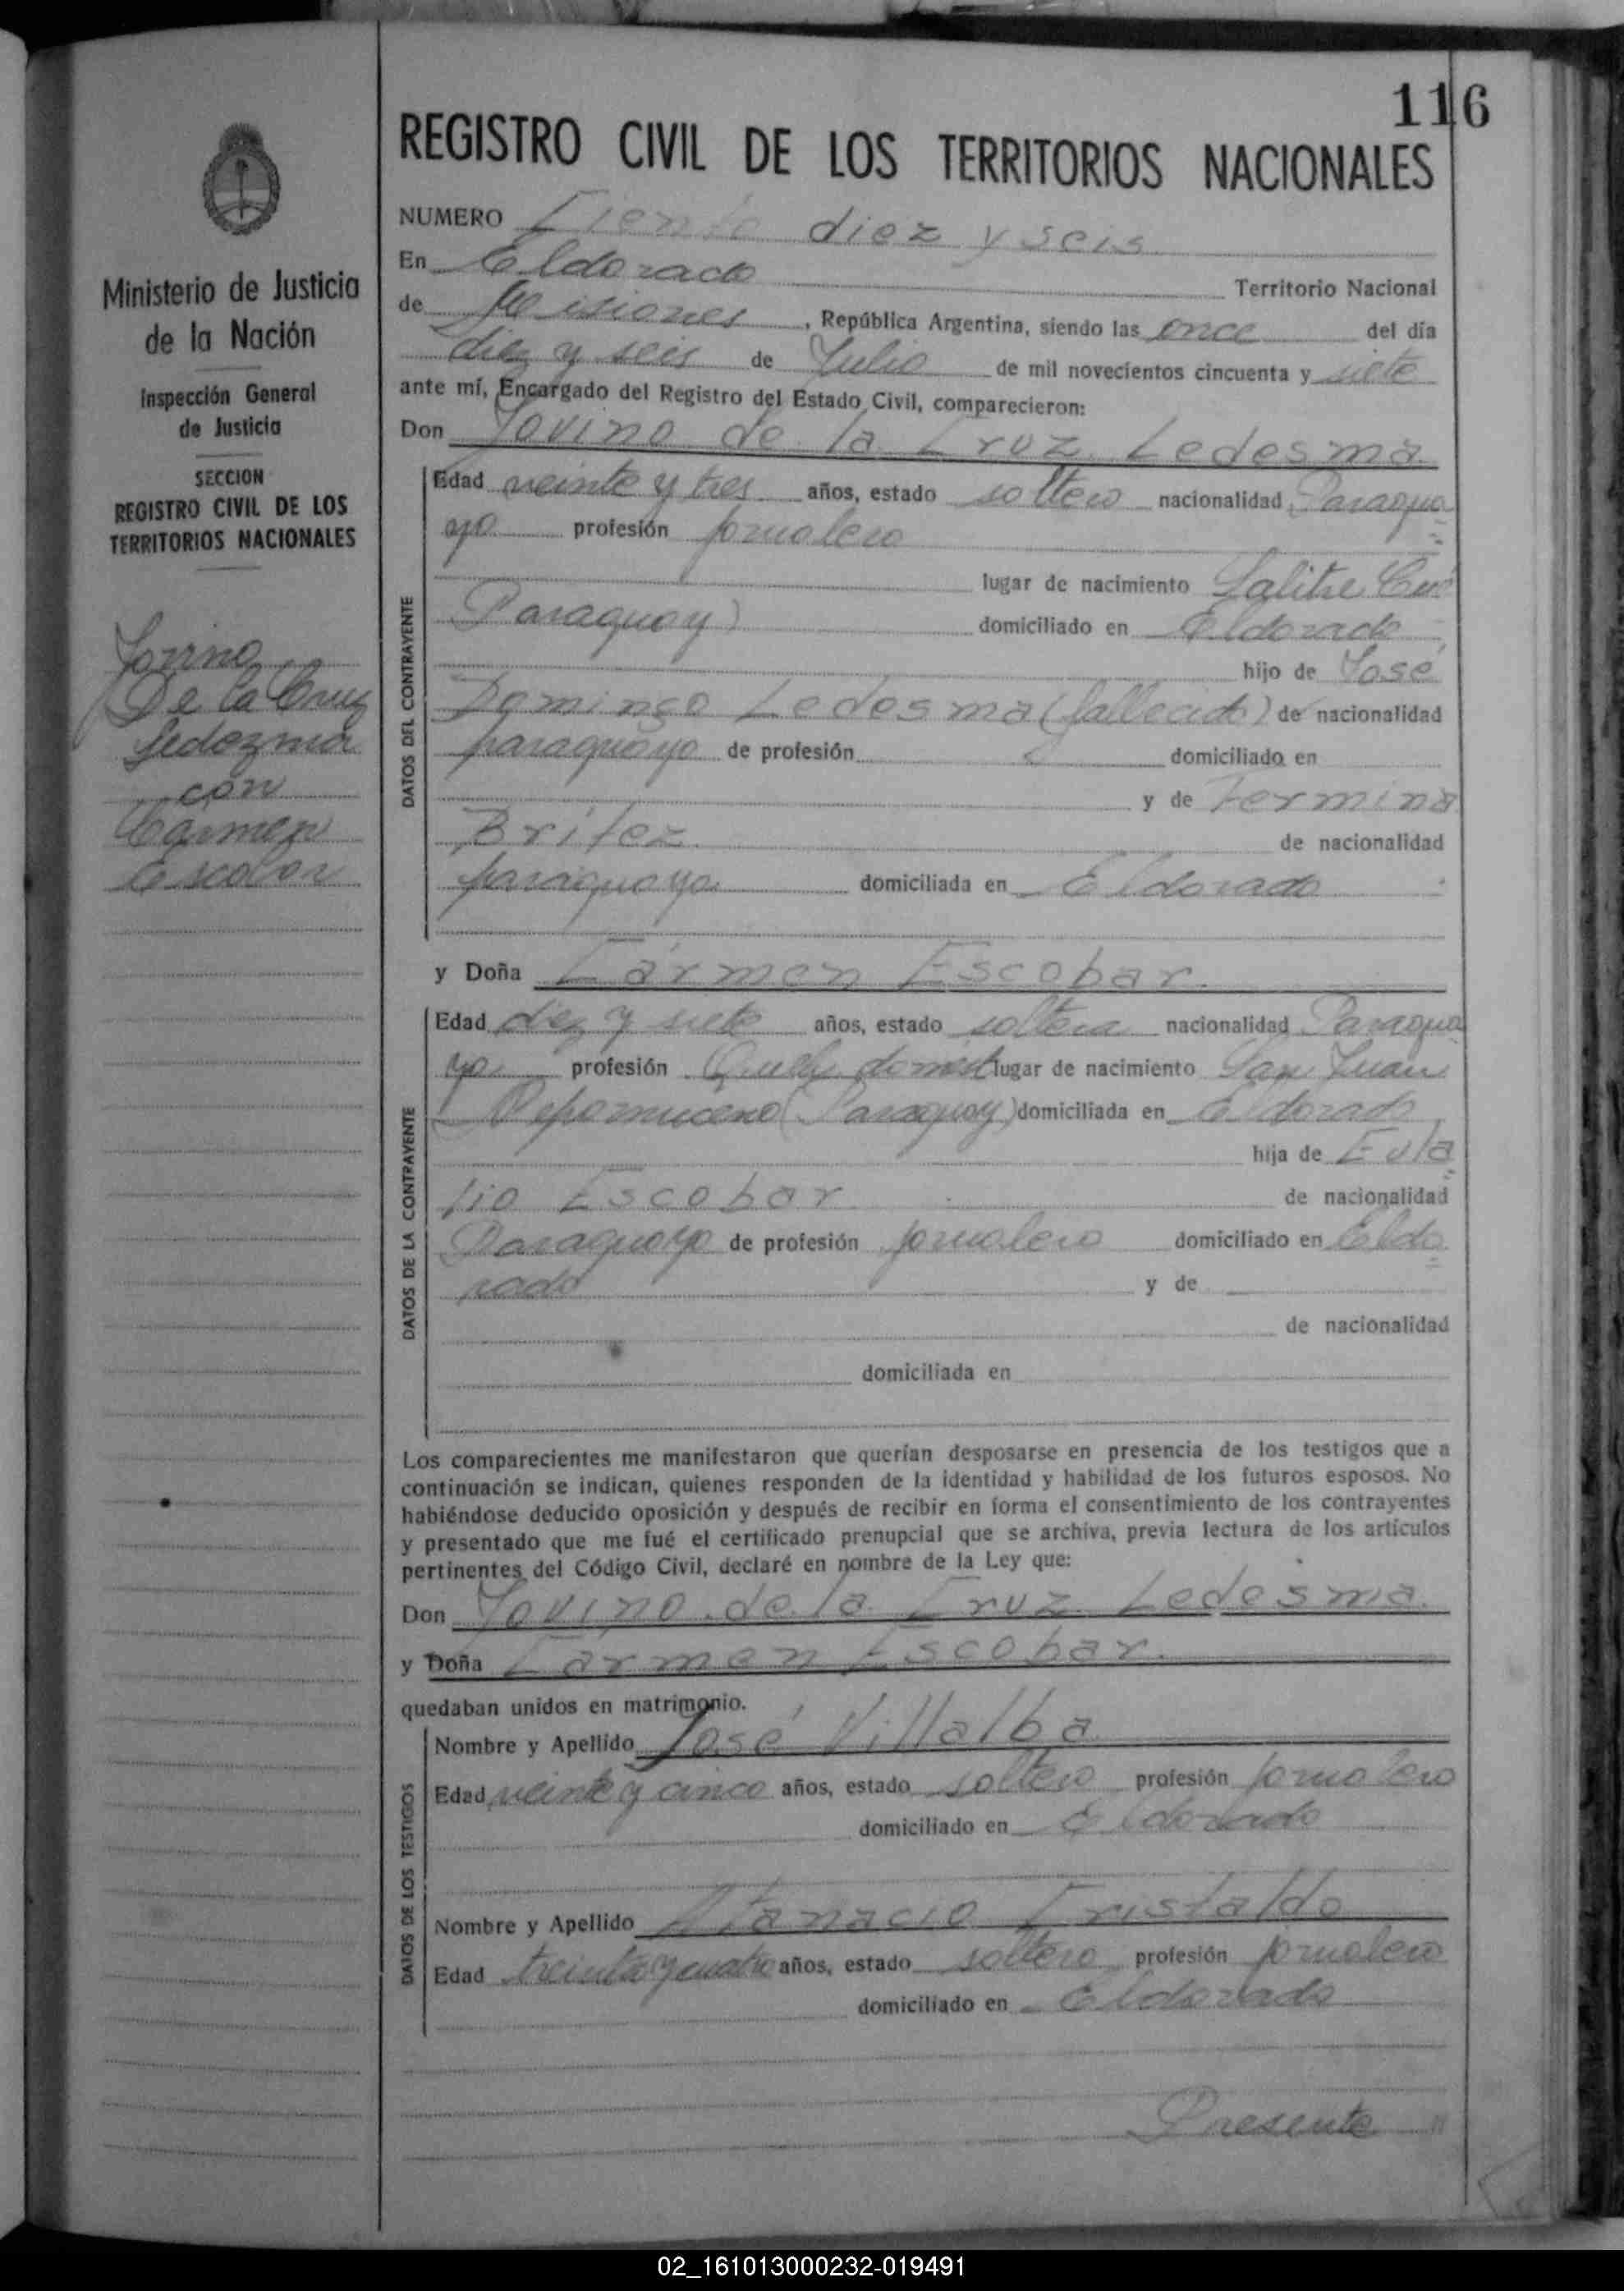 116
REGISTRO CIVIL DE LOS TERRITORIOS NACIONALES
Ministerio de Justicia
de la Nación
Inspección General
de Justicia
SECCION
REGISTRO CIVIL DE LOS
TERRITORIOS NACIONALES
Jovino
De la Cruz
Ledezma
con
Cármen
Escobar
NUMERO Ciento diez y seis
En Eldorado Territorio Nacional
de Misiones, República Argentina, siendo las once del día
diez y seis de Julio de mil novecientos cincuenta y siete
ante mí, Encargado del Registro del Estado Civil, comparecieron:
Don Jovino de la Cruz Ledesma
DATOS DEL CONTRAYENTE
Edad veinte y tres años, estado soltero nacionalidad Paragua
yo profesión jornalero
lugar de nacimiento Salitre Cué
Paraguay) domiciliado en Eldorado
hijo de José
Domingo Ledesma (fallecido) de nacionalidad
paraguayo de profesión domiciliado en
y de Fermina
Britez de nacionalidad
paraguaya domiciliada en Eldorado
y Doña Cármen Escobar.
DATOS DE LA CONTRAYENTE
Edad diez y siete años, estado soltera nacionalidad Paragua
ya profesión domést lugar de nacimiento San Juan
Nepomuceno (Paraguay) domiciliada en Eldorado
hija de Eula
lio Escobar de nacionalidad
Paraguayo de profesión jornalero domiciliado en Eldo
rado y de
de nacionalidad
domiciliada en
Los comparecientes me manifestaron que querían desposarse en presencia de los testigos que a
continuación se indican, quienes responden de la identidad y habilidad de los futuros esposos. No
habiéndose deducido oposición y después de recibir en forma el consentimiento de los contrayentes
y presentado que me fué el certificado prenupcial que se archiva, previa lectura de los artículos
pertinentes del Código Civil, declaré en nombre de la Ley que:
Don Jovino de la Cruz Ledesma.
y Doña Cármen Escobar.
quedaban unidos en matrimonio.
DATOS DE LOS TESTIGOS
Nombre y Apellido José Villalba
Edad veinte y cinco años, estado soltero profesión jornalero
domiciliado en Eldorado
Nombre y Apellido Atanacio Cristaldo
Edad treinta y cuatro años, estado soltero profesión jornalero
domiciliado en Eldorado
Presente
02_161013000232-019491